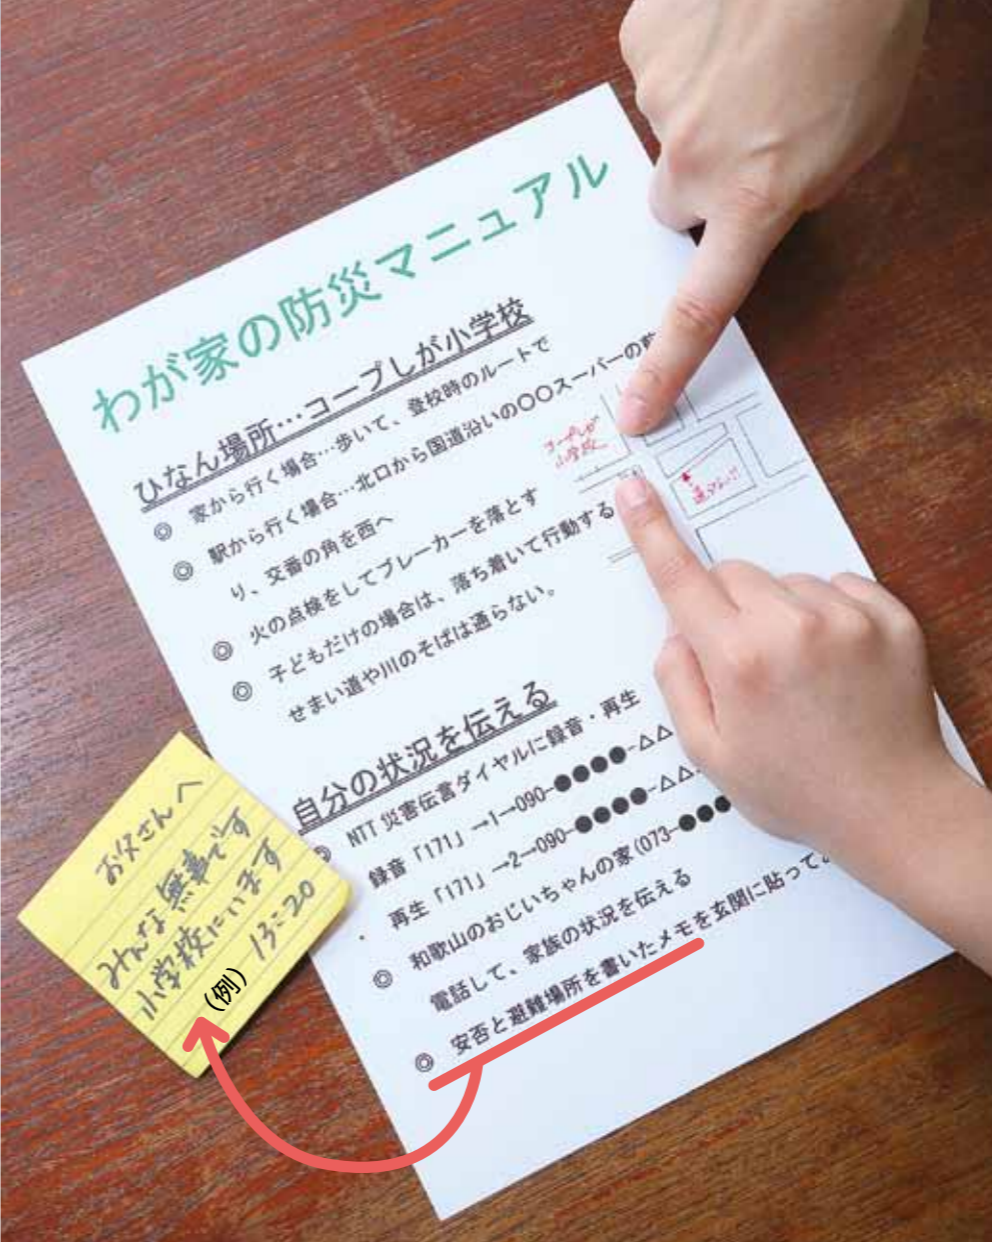 わが家の防災マニュアル
ひなん場所…コープしが小学校
◎ 家から行く場合…歩いて、登校時のルートで
◎ 駅から行く場合…北口から国道沿いの〇〇スーパーの前
り、交番の角を西へ
◎ 火の点検をしてブレーカーを落とす
◎ 子どもだけの場合は、落ち着いて行動する
せまい道や川のそばは通らない。
コープしが
小学校
通らない!!
自分の状況を伝える
◎ NTT 災害伝言ダイヤルに録音・再生
録音「171」→1→090-●●●●-△△
・ 再生「171」→2→090-●●●●-△△
◎ 和歌山のおじいちゃんの家(073-●●●
電話して、家族の状況を伝える
◎ 安否と避難場所を書いたメモを玄関に貼って
お父さんへ
みんな無事です
小学校にいます
13:20
(例)